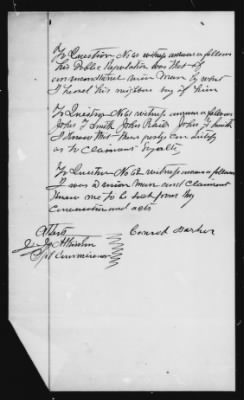 To Question No 60 witness answers as follows
His Public Reputation was that of
an unconditional union man by what
I heard his neighbors say of him
To Question No 61 witness answers as follows
John T Smith John
I know that these party can testify
as to Claimants loyalty
To Question No 62 witness answers as follows
I was a union man and claimant
knew me to be such from my
conversation and acts
Attest
Conrad Barker
Spl Commissioner